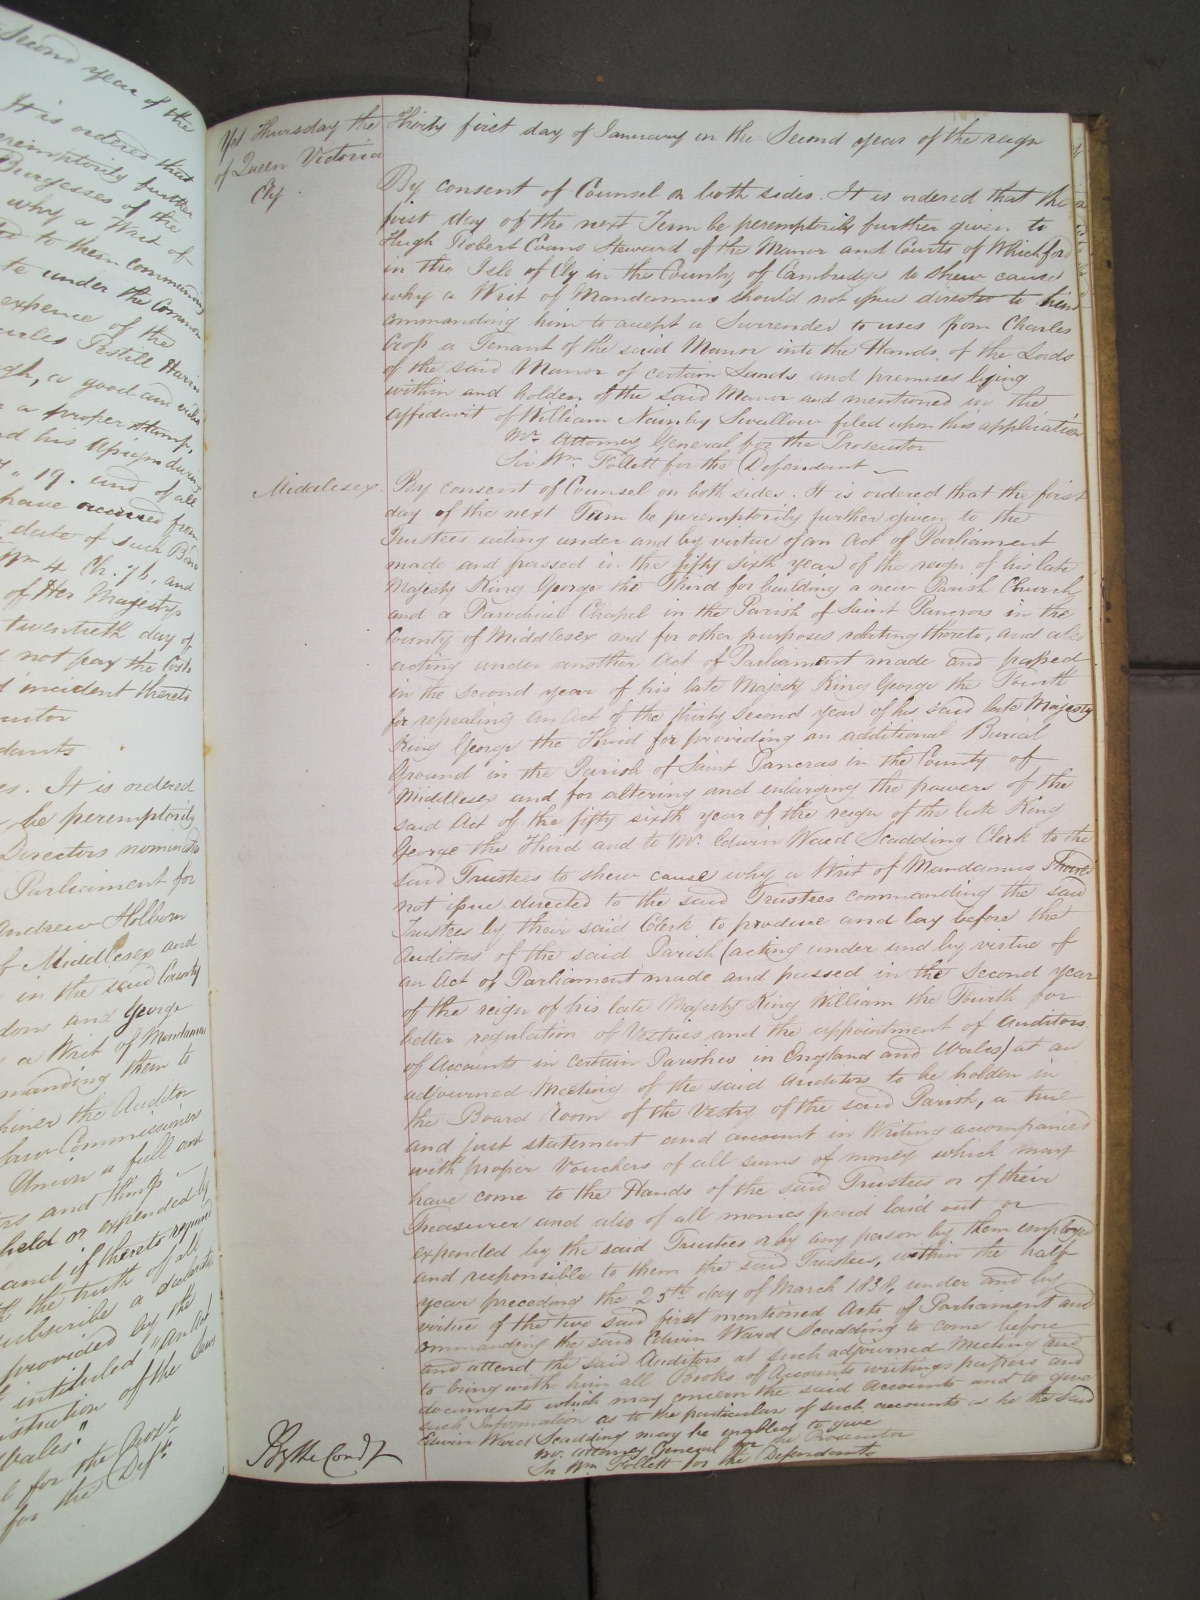 Second year of the
It is ordered that
peremptorily further
Burgesses of the
why a Writ of
to them commanding
under the Common
expence of the
Charles Pestell Harris
a good and
a proper stamp,
and his Assigns during
19. and of all
have accrued from
date of such Bond
Wm 4 Ch. 76, and
of Her Majestys
twentieth day of
not pay the Costs
incident thereto
dants
It is ordered
be peremptorily
Directors nominated
Parliament for
Andrew Holborn
of Middlesex and
in the said County
and George
a Writ of Mandamus
commanding them to
the Auditor
Law Commissioners
Union a full and
and things
held or expended by
and if thereto required
the truth of all
subscribe a declaration
provided by the
intituled "An Act
of the Laws
Wales."
for the
for the Defts.
Yet Thursday the Thirty first day of January in the Second year of the reign
of Queen Victoria
Ely
By consent of Counsel on both sides. It is ordered that the
first day of the next Term be peremptorily further given to
Hugh Robert Evans Steward of the Manor and Courts of Witchford
in the Isle of Ely in the County of Cambridge to shew cause
why a Writ of Mandamus should not issue directed to him
commanding him to accept a Surrender to uses from Charles
Crop a Tenant of the said Manor into the Hands of the Lords
of the said Manor of certain Lands and premises lying
within and holden of the said Manor and mentioned in the
affidavit of William Nainby Swallow filed upon this application
Mr. Attorney General for the Prosecutor
Sir Wm. Follett for the Defendant
Middlesex
By consent of Counsel on both sides. It is ordered that the first
day of the next Term be peremptorily further given to the
Trustees acting under and by virtue of an Act of Parliament
made and passed in the fifty sixth year of the reign of his late
Majesty King George the Third for building a new Parish Church
and a Parochial Chapel in the Parish of Saint Pancras in the
County of Middlesex and for other purposes relating thereto, and also
acting under another Act of Parliament made and passed
in the second year of his late Majesty King George the Fourth
for repealing an Act of the thirty second year of his said late Majesty
King George the Third for providing an additional Burial
Ground in the Parish of Saint Pancras in the County of
Middlesex and for altering and enlarging the powers of the
said Act of the fifty sixth year of the reign of the late King
George the Third and to Mr. Edwin Ward Scadding Clerk to the
said Trustees to shew cause why a Writ of Mandamus should
not issue directed to the said Trustees commanding the said
Trustees by their said Clerk to produce and lay before the
Auditors of the said Parish (acting under and by virtue of
an Act of Parliament made and passed in the Second year
of the reign of his late Majesty King William the Fourth for
better regulation of Vestries and the appointment of Auditors
of Accounts in certain Parishes in England and Wales) at an
adjourned Meeting of the said Auditors to be holden in
the Board Room of the Vestry of the said Parish, a true
and just statement and account in Writing accompanied
with proper Vouchers of all sums of money which may
have come to the Hands of the said Trustees or of their
Treasurer and also of all monies paid laid out or
expended by the said Trustees or by any person by them employed
and responsible to them the said Trustees, within the half
year preceding the 25th day of March 1838, under and by
virtue of the two said first mentioned Acts of Parliament and
commanding the said Edwin Ward Scadding to come before
and attend the said Auditors at such adjourned Meeting and
to bring with him all Books of Accounts writings papers and
documents which may concern the said Accounts and to give
such Information as to the particulars of such accounts as he the said
Edwin Ward Scadding may be enabled to give
Mr. Attorney General for the Prosecutor
Sir Wm. Follett for the Defendants